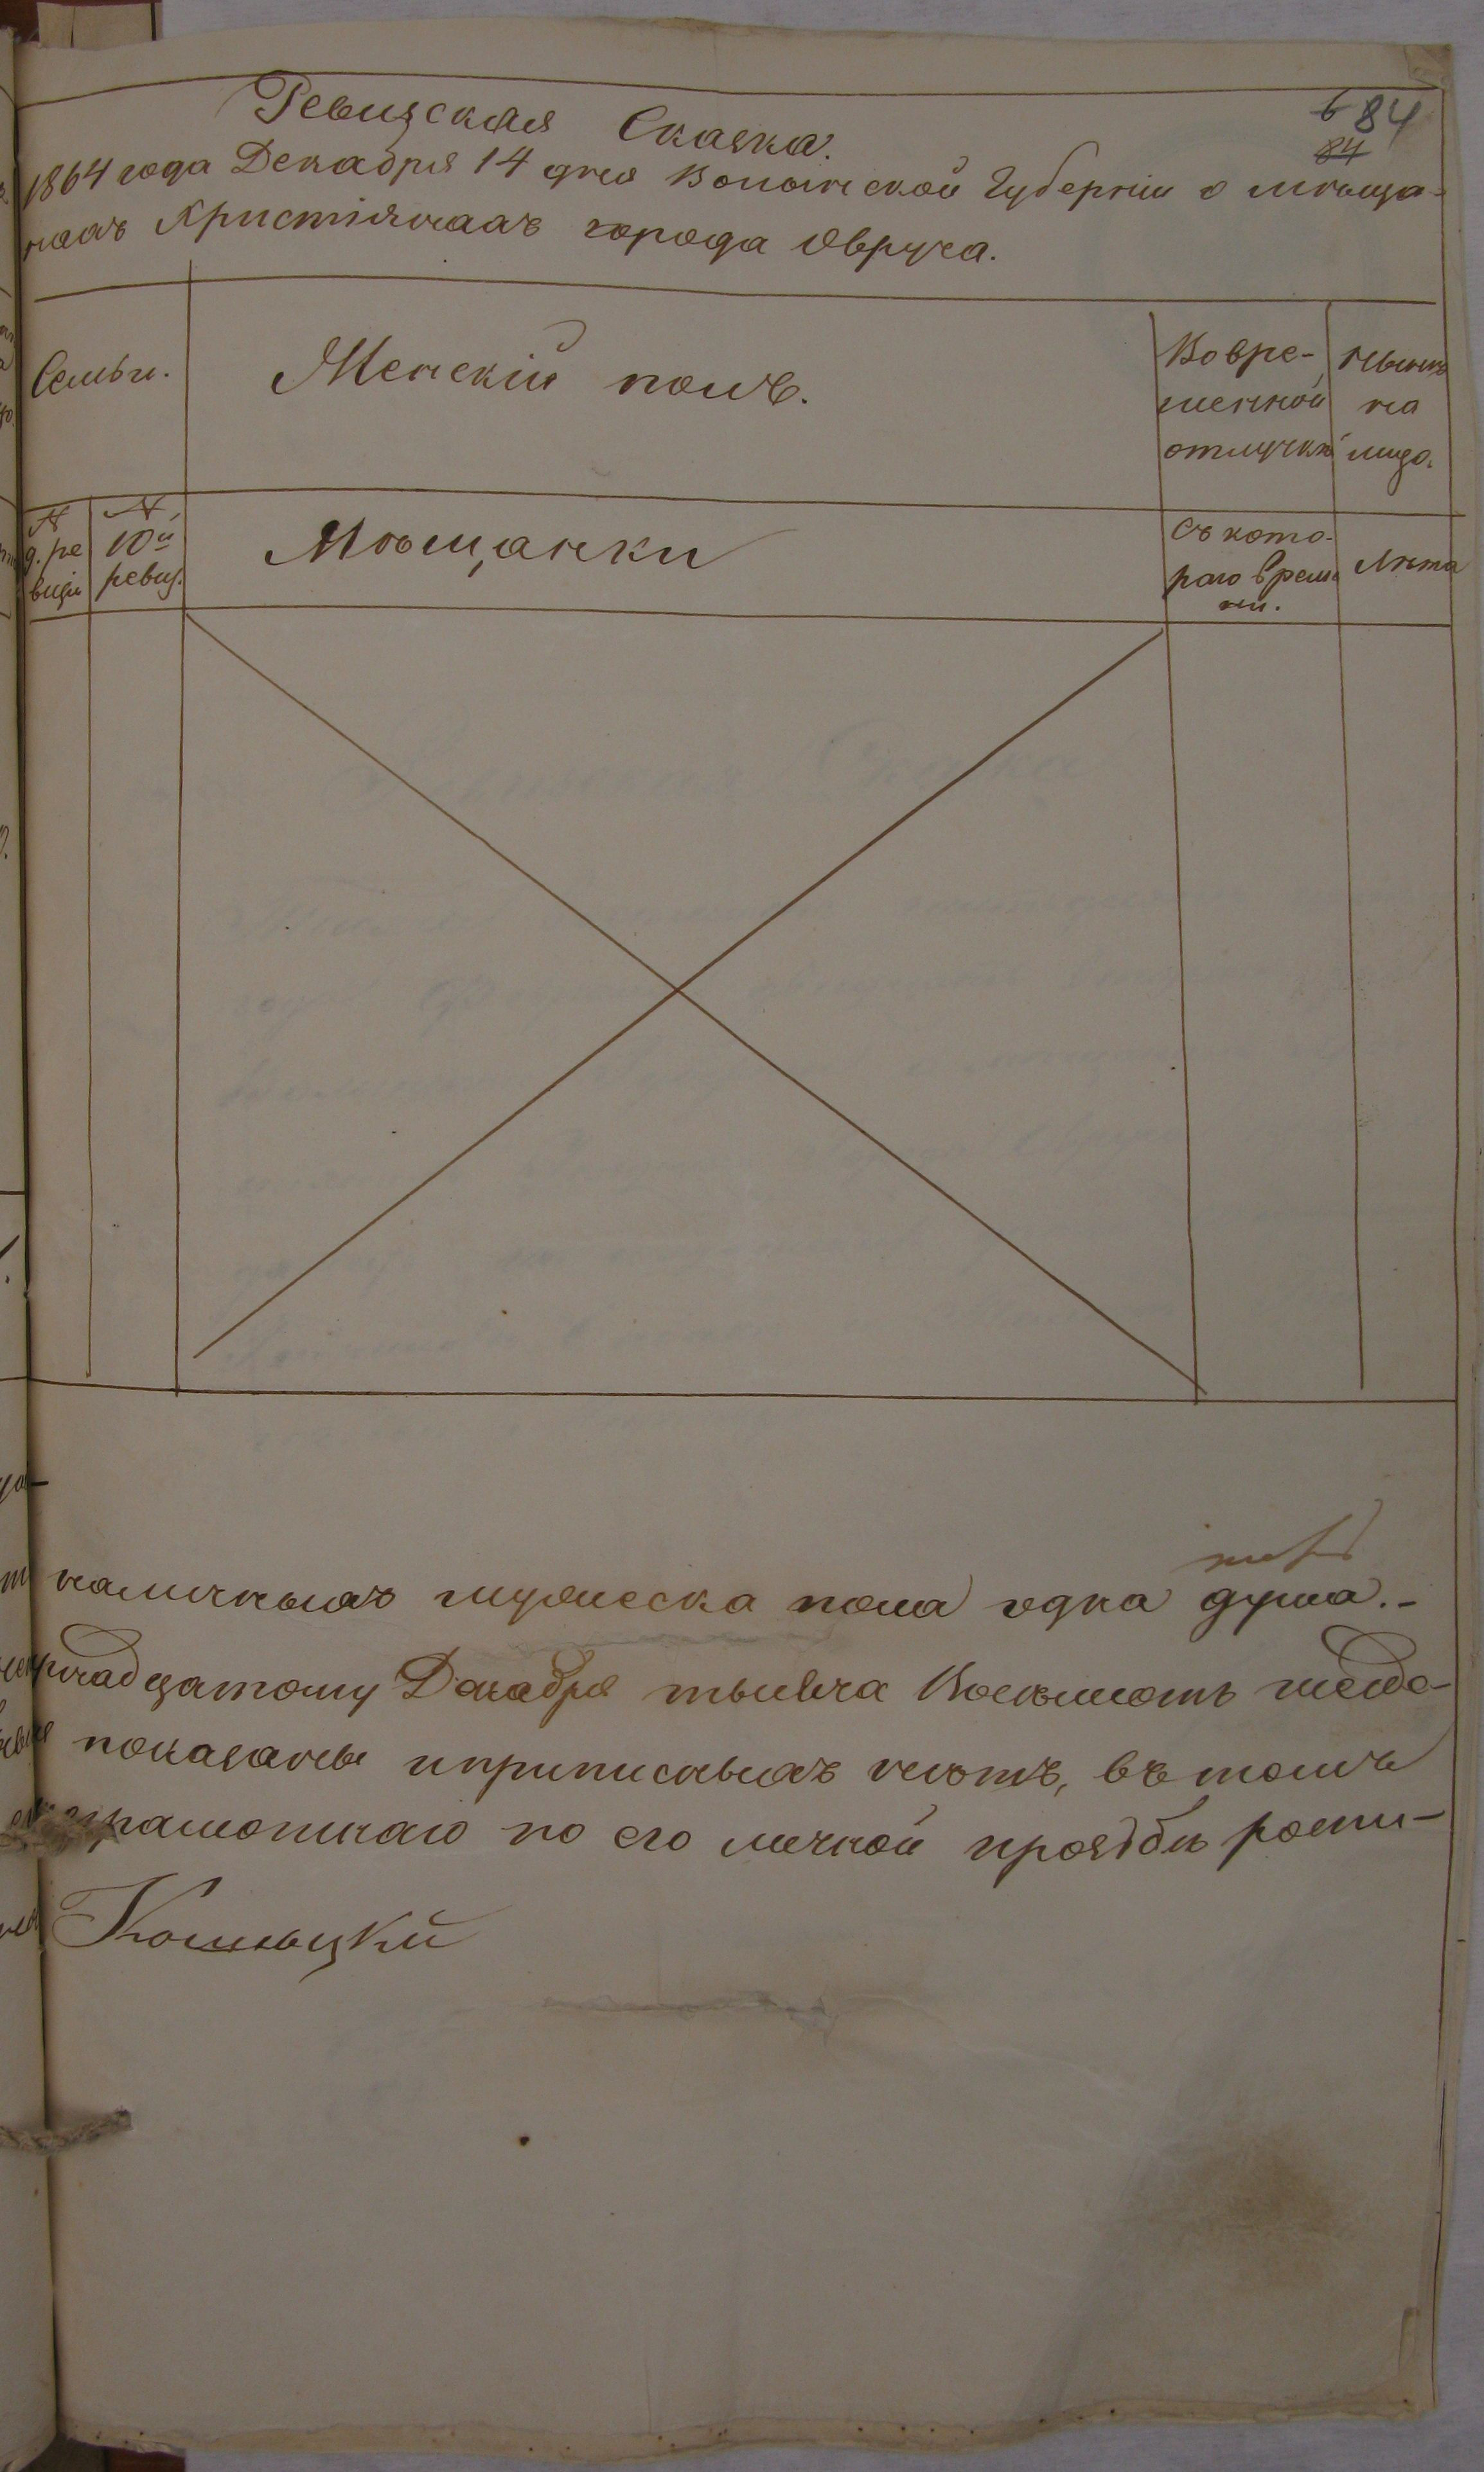 6 84
84
Ревизская Сказка.
1864 года Декабря 14 дня Волынской Губерніи о мѣща-
нахъ Христіянахъ города Овруча.
Семьи.
Женскій полъ.
Во вре-
менной
отлучкѣ
Нынѣ
на
лицо.
№
9. ре
визіи
№
10й
ревиз.
Мѣщанки
Съ кото-
раго време
ни.
Лѣта
наличныхъ мужеска пола одна душа.-
надцатому Декабря тысяча Восемьсотъ шесдо-
показаны и прописныхъ нѣтъ, въ томъ
грамотнаго по его личной прозбѣ роспи-